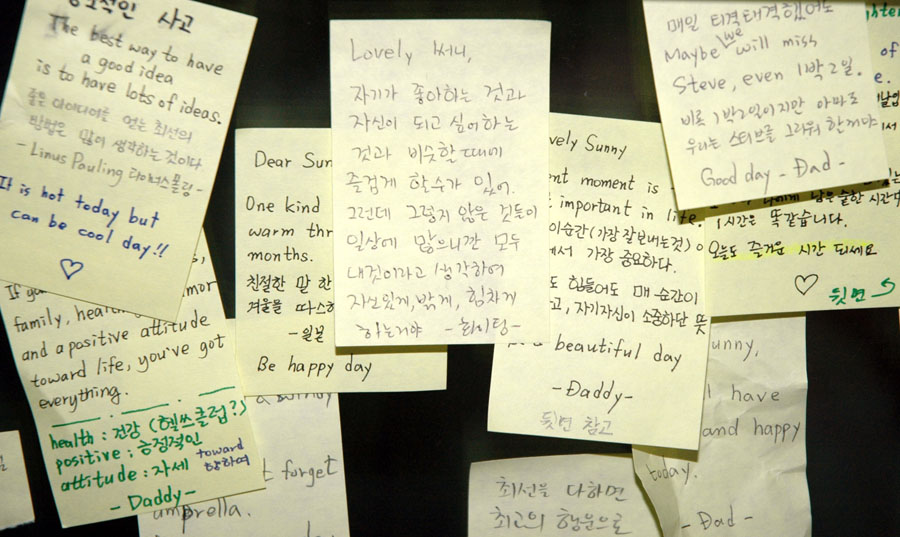 적인 사고
The best way to have
a good idea
is to have lots of ideas.
좋은 아이디어를 얻는 최선의
방법은 많이 생각하는 것이다
- Linus Pauling 라이너스폴링 -
It is hot today but
can be cool day!!
♡
family,
and a positive attitude
toward life, you've got
everything.
health : 건강 (헬쓰클럽?)
positive : 긍정적인
attitude : 자세 toward 향하여
- Daddy -
Dear Sun
One kind
warm thr
months.
친절한 말 한
겨울을 따스하
- 일본
Be happy day
forget
umprella.
Lovely 써니,
자기가 좋아하는 것과
자신이 되고 싶어하는
것과 비슷할 때에
즐겁게 할수가 있어.
그런데 그렇지 않은 것들이
일상에 많으니깐 모두
내것이라고 생각하여
자신있게, 밝게, 힘차게
하는거야 - 화이팅 -
vely Sunny
ent moment is
important in life.
이순간(가장 잘보내는것)
에서 가장 중요하다.
도 힘들어도 매 순간이
고, 자기자신이 소중하단 뜻
beautiful day
- Daddy -
뒷면 참고
매일 티격태격 했어도
Maybe we will miss
Steve, even 1박 2일.
비록 1박2일이지만 아마도
우리는 스티브를 그리워 할꺼야
Good day - Dad -
of
시간은 똑같습니다.
오늘도 즐거운 시간 되세요
♡
뒷면
unny,
have
and happy
today.
- Dad -
최선을 다하면
최고의 행운으로